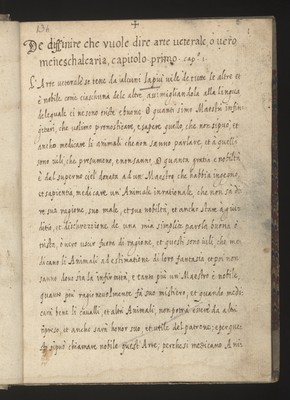 +
De diffinire che vuole dire arte veterale, o vero
meneschalcaria, capitolo primo. cap.o 1.
L'Arte veterale se tene da alcuni la piu vile de tutte le altre et
è nobile come ciaschuna dele altre, asimigliandola alla lingua
dele quale ci ne sono triste et buone. O quanti sono Maestri
che voleno pronosticare, et sapere quello, che non si può, et
ancho medicare li animali che non sanno parlare, et a questi
sono vili, che presumeno, et non sanno. O quanta gratia e nobilità
è dal superno ciel donata ad un Maestro che habbia ingegno,
et sapientia, medicare un' Animale inrationale, che non sa dire
sua ragione, suo male, et que nobilità, et ancho
et distructione de una mia simplici parola buona o
trista, o vero usar fuora di ragione, et questi sono vili, che me
dicano li Animali ad estimatione di loro fantasia, et poi non
sanno dove sia la infirmità, et tanto più un Maestro è nobile,
quanto più ragionevolmente fa suo mistiero, et quando medi
carà bene li cavalli, et altri Animali, non potrà essere da altri
ripreso, et ancho sarà honor suo, et utile del patrone; e per questo
si può chiamare nobile quest' Arte; perche si medicano A ni